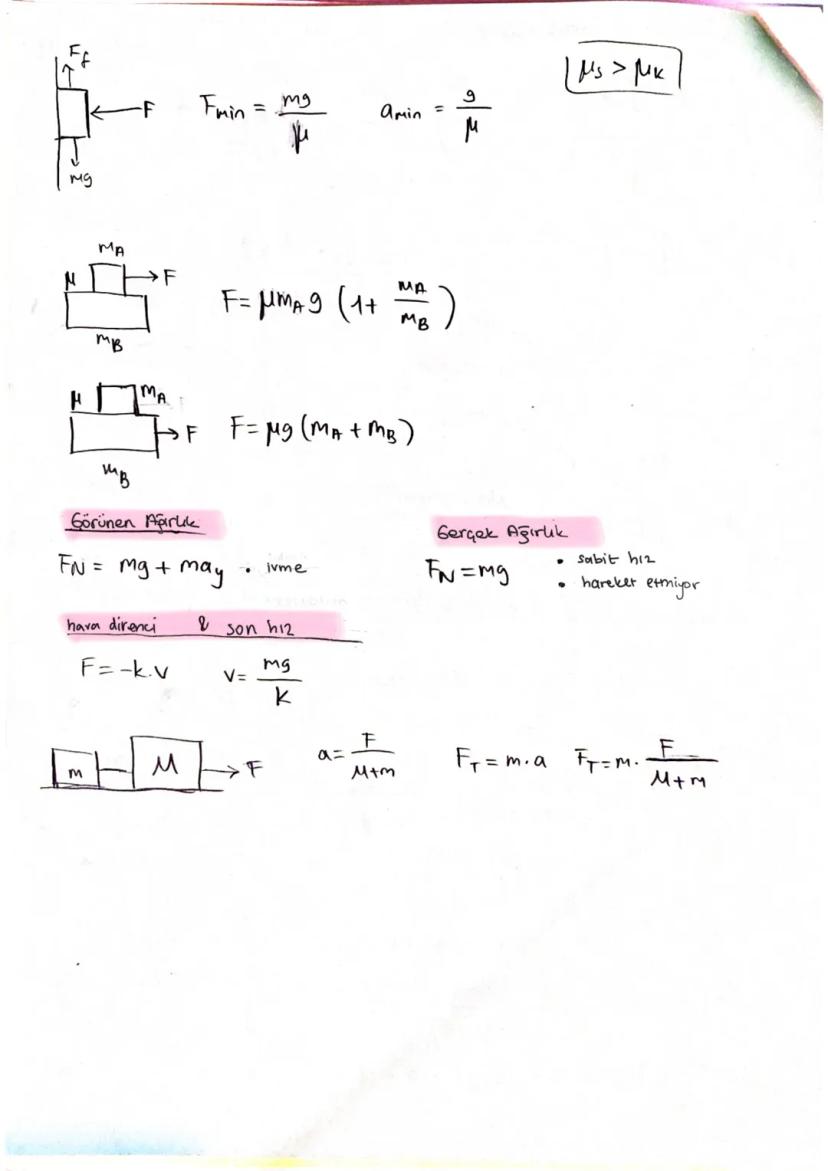 μs > μk
Ff
F
mg
Fmin = mg/μ amin = g/μ
mA
μ F
mB
F = μmAg (1 + mA/mB)
μ mA
F
mB
F = μg (mA + mB)
Görünen Ağırlık
FN = mg + may • ivme
Gerçek Ağırlık
FN = mg
• sabit hız
• hareket etmiyor
hava direnci & son hız
F = -k.v v = mg/k
m M F
a = F/M+m FT = m.a FT = m. F/M+m